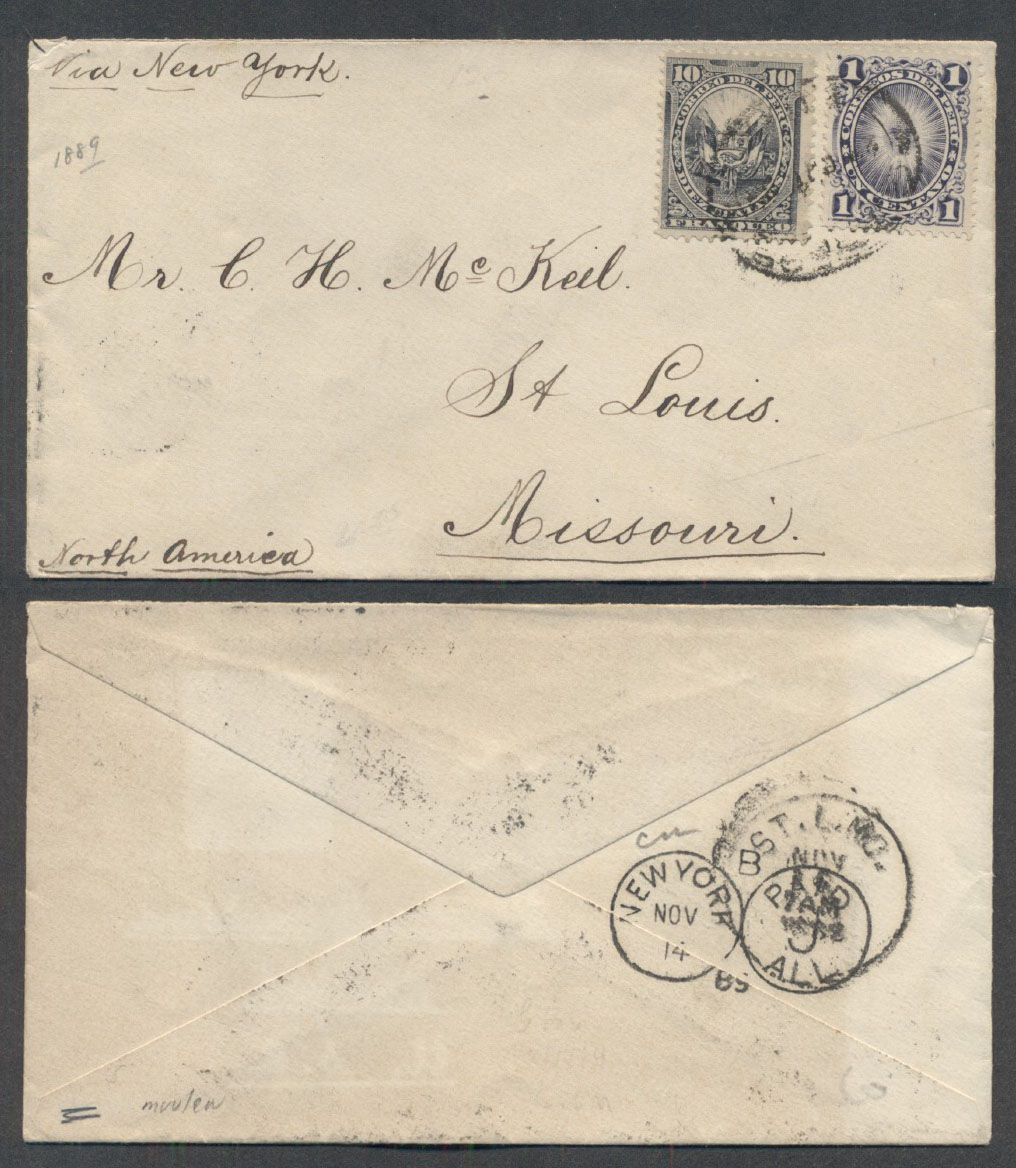 Via New York.
1889
10 10
CORREO DEL PERU
DIEZ CENTAVOS
FRANQUEO
1 1
CORREOS DEL PERU
UN CENTAVO
1 1
Mr. C. H. McKeil.
St Louis.
Missouri.
North America
ST. L. MO.
B NOV
NEW YORK
NOV
14
89
PAID
J
ALL